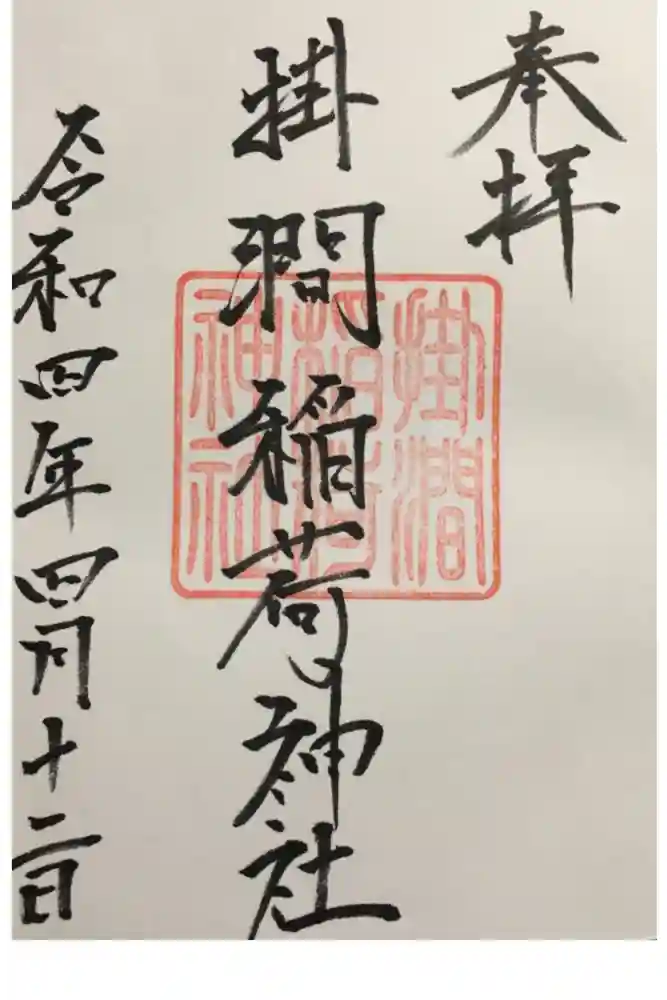 奉拝
掛澗稲荷神社
掛澗稲荷神社
令和四年四月十二日